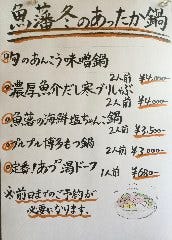 魚藩冬のあったか鍋
旬のあんこう味噌鍋
2人前 ¥4,000-
濃厚魚介だし寒ブリしゃぶ
2人前 ¥4,000-
魚藩の海鮮塩ちゃんこ鍋
2人前 ¥3,500-
プルプル博多もつ鍋
2人前 ¥3,000-
定番!あつあつ湯ドーフ
1人前 ¥680-
※前日までのご予約が
必要になります。